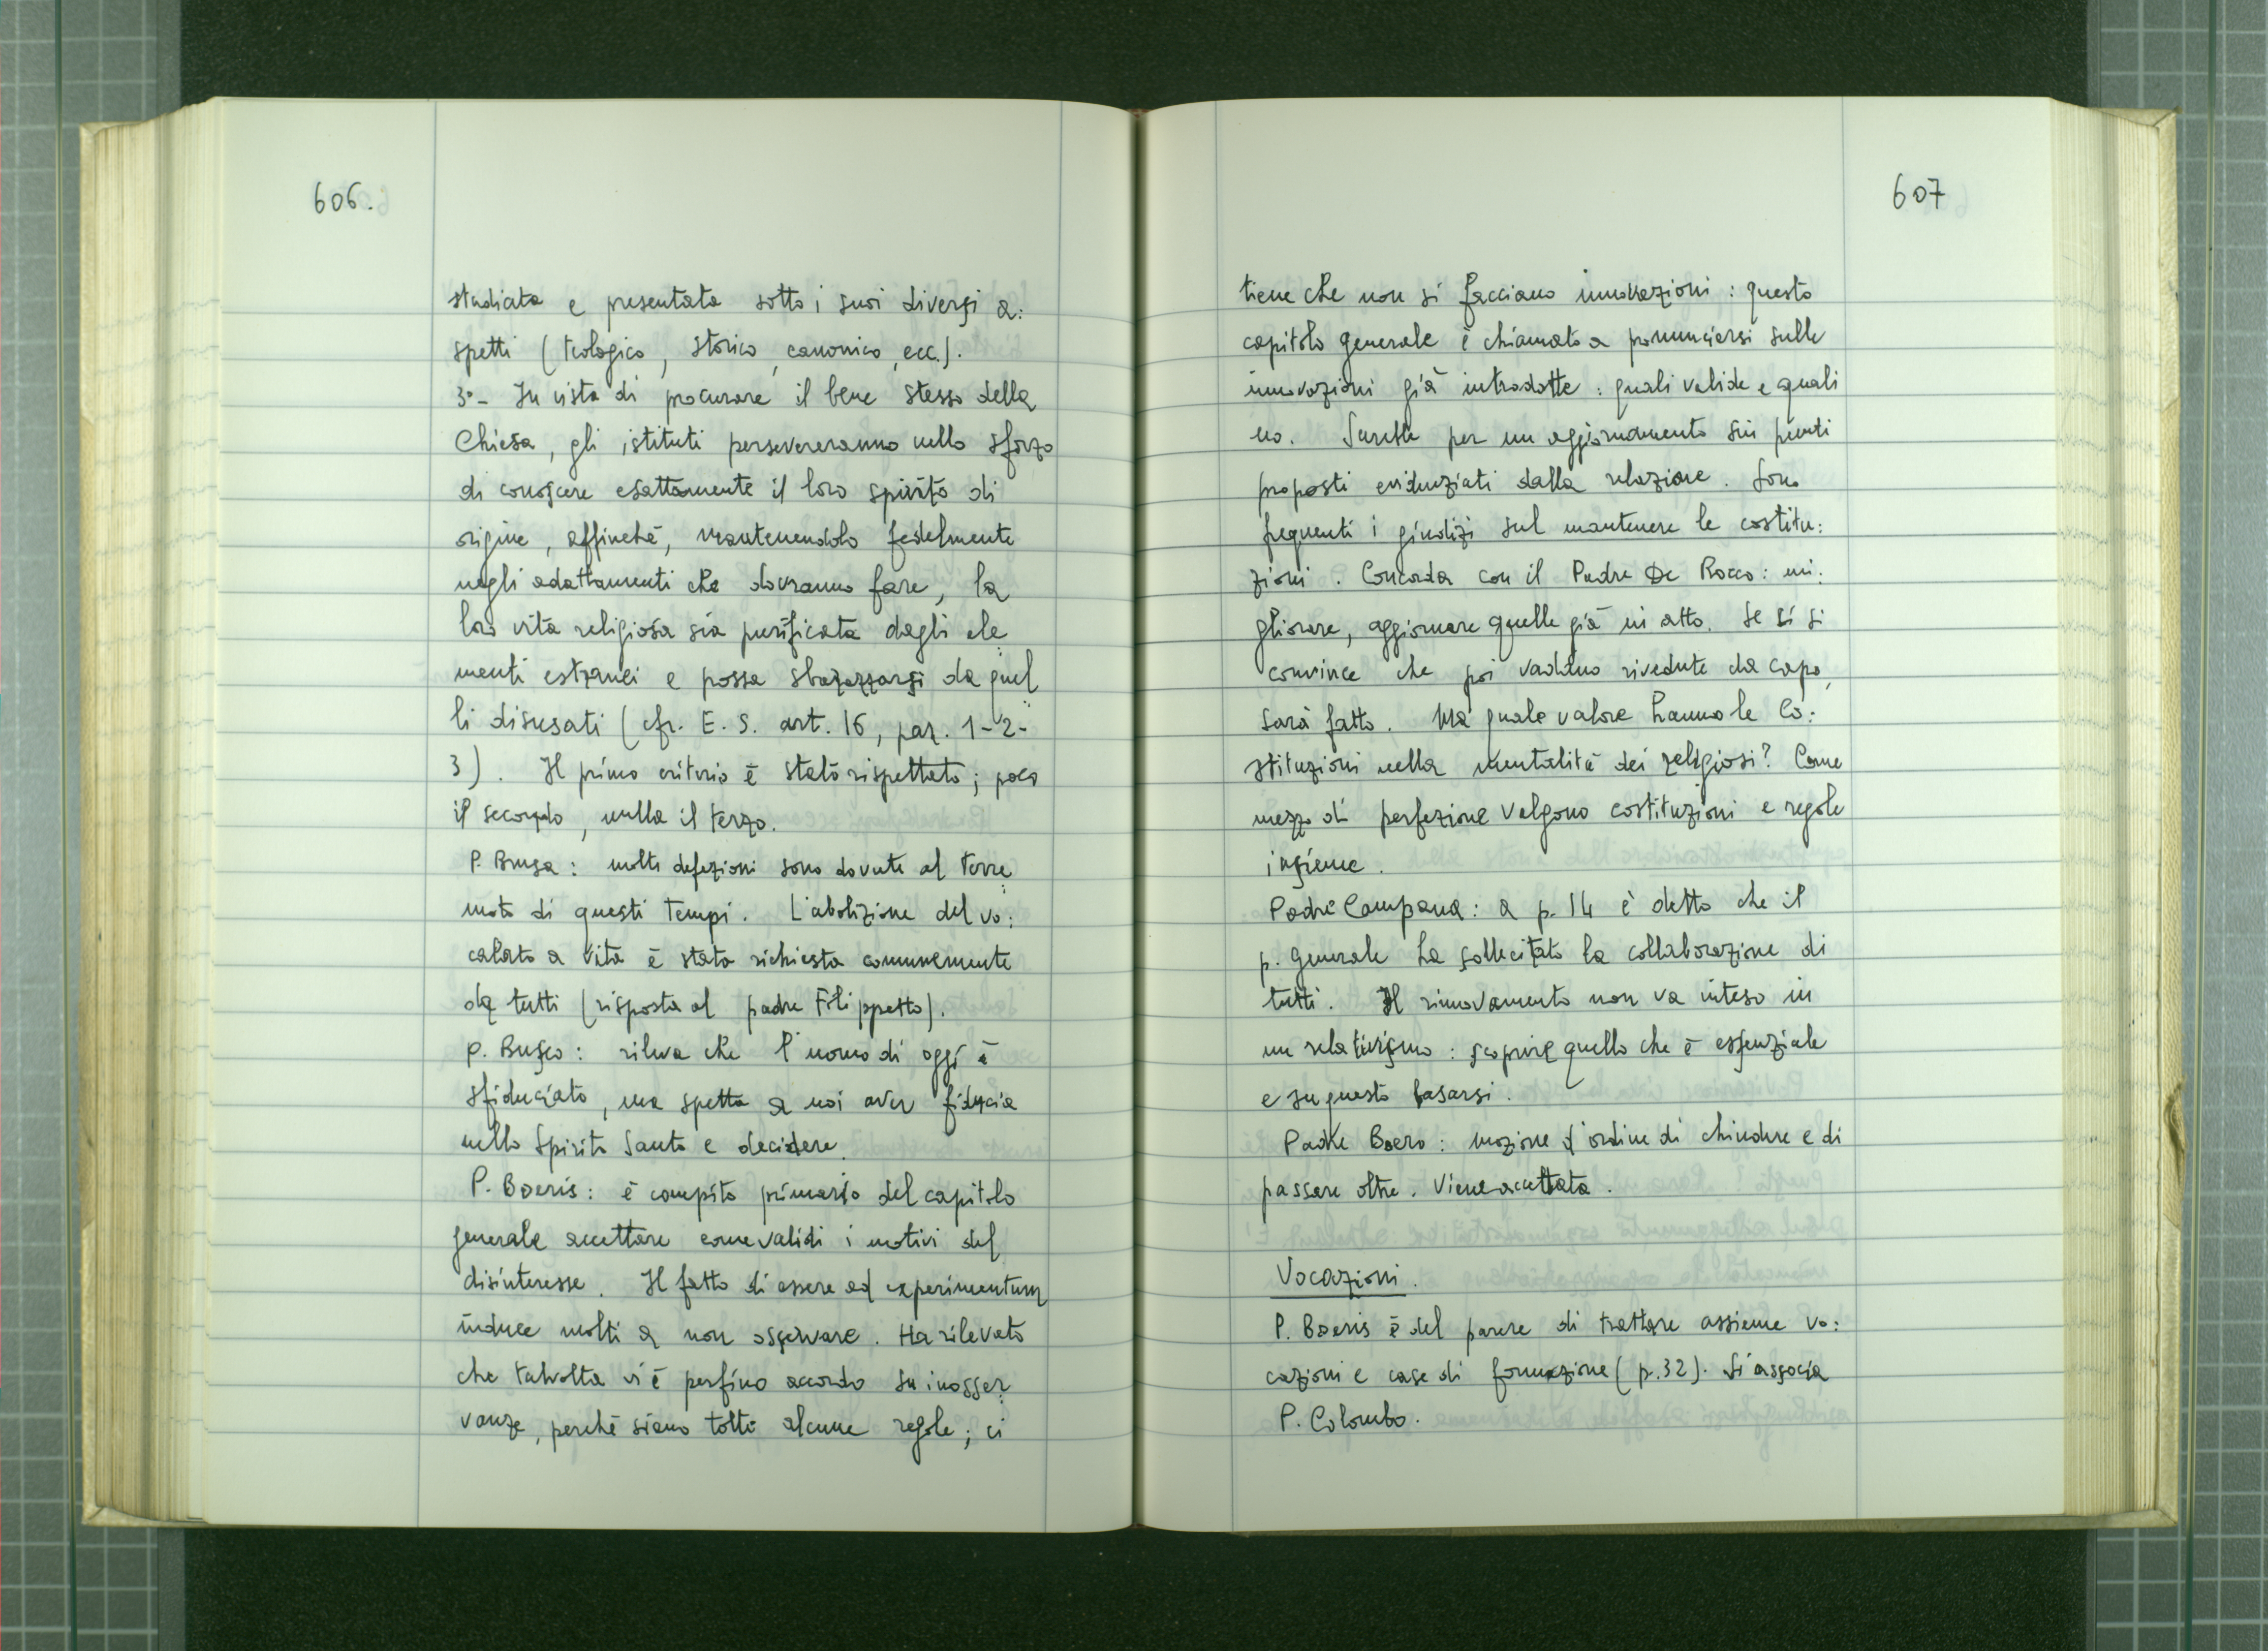 606.
studiata e presentata sotto i suoi diversi a:
spetti (teologico, storico, canonico, ecc.).
3°- In vista di procurare il bene stesso della
Chiesa, gli istituti persevereranno nello sforzo
di conoscere esattamente il loro spirito di
origine, affinché, mantenendolo fedelmente
negli adattamenti che dovranno fare, la
loro vita religiosa sia purificata dagli ele
menti estranei e possa sbarazzarsi da quel
li disusati (cfr. E. S. art. 16, par. 1-2-
3). Il primo criterio è stato rispettato; poco
il secondo, nulla il terzo.
P. Brusa: molte defezioni sono dovute al terre
moto di questi tempi. L'abolizione del vo:
calato a vita è stata richiesta comunemente
da tutti (risposta al padre Filippetto).
P. Busco: rileva che l'uomo di oggi è
sfiduciato, ma spetta a noi aver fiducia
nello Spirito Santo e decidere.
P. Boeris: è compito primario del capitolo
generale accettare come validi i motivi del
disinteresse. Il fatto di essere ad experimentum
induce molti a non osservare. Ha rilevato
che talvolta vi è perfino accordo su inosser
vanze, perché siano tolte alcune regole; ci
607
tiene che non si facciano innovazioni: questo
capitolo generale è chiamato a pronunciarsi sulle
innovazioni già introdotte: quali valide e quali
no. Sarebbe per un aggiornamento sui punti
proposti evidenziati dalla relazione. Sono
frequenti i giudizi sul mantenere le costitu:
zioni. Concorda con il Padre De Rocco: mi:
gliorare, aggiornare quelle già in atto. Se ci si
convince che poi vadano rivedute da capo,
sarà fatto. Ma quale valore hanno le Co:
stituzioni nella mentalità dei religiosi? Come
mezzo di perfezione valgono costituzioni e regole
insieme.
Padre Campana: a p. 14 è detto che il
p. Generale ha sollecitato la collaborazione di
tutti. Il rinnovamento non va inteso in
un relativismo: scoprire quello che è essenziale
e su questo basarsi.
Padre Boero: mozione d'ordine di chiudere e di
passare oltre. Viene accettata.
Vocazioni.
P. Boeris è del parere di trattare assieme vo:
cazioni e case di formazione (p. 32). Si associa
P. Colombo.